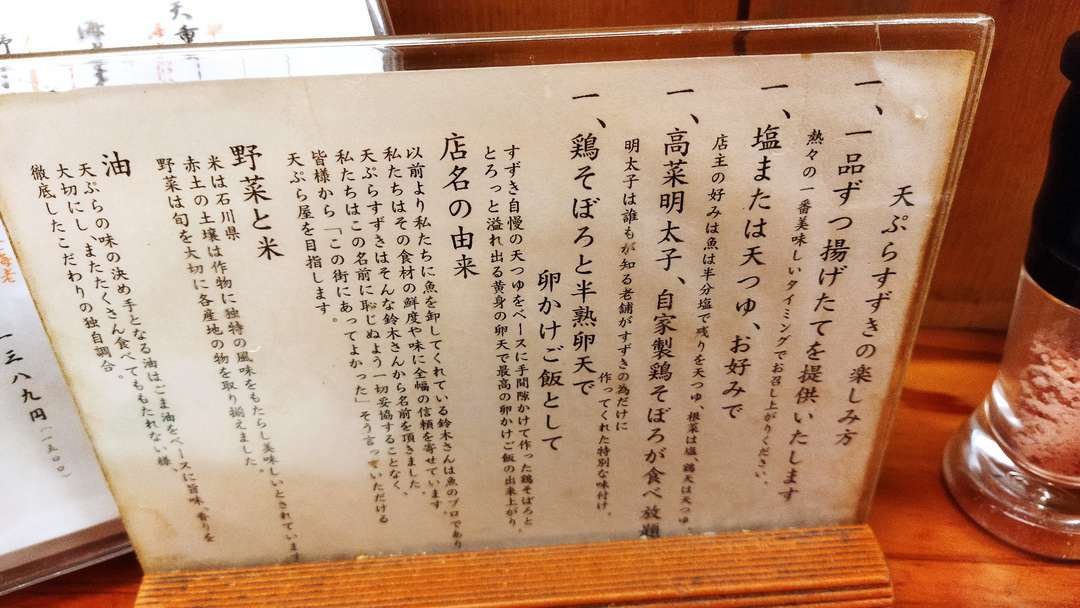 天ぷらすずきの楽しみ方
一、一品ずつ揚げたてを提供いたします
熱々の一番美味しいタイミングでお召し上がりください。
一、塩または天つゆ、お好みで
店主の好みは魚は半分塩で残りを天つゆ、根菜は塩、鶏天は天つゆ。
一、高菜明太子、自家製鶏そぼろが食べ放題
明太子は誰もが知る老舗がすずきの為だけに
作ってくれた特別な味付け。
一、鶏そぼろと半熟卵天で
卵かけご飯として
すずき自慢の天つゆをベースに手間隙かけて作った鶏そぼろと
とろっと溢れ出る黄身の卵天で最高の卵かけご飯の出来上がり。
店名の由来
以前より私たちに魚を卸してくれている鈴木さんは魚のプロであり
私たちはその食材の鮮度や味に全幅の信頼を寄せています。
天ぷらすずきはそんな鈴木さんから名前を頂きました。
私たちはこの名前に恥じぬよう一切妥協することなく、
皆様から「この街にあってよかった」そう言っていただける
天ぷら屋を目指します。
野菜と米
米は石川県
赤土の土壌は作物に独特の風味をもたらし美味しいとされています
野菜は旬を大切に各産地の物を取り揃えました。
油
天ぷらの味の決め手となる油はごま油をベースに旨味、香りを
大切にし、またたくさん食べてももたれない様、
徹底したこだわりの独自調合。
天重
海老
一三八九円(一五〇〇)